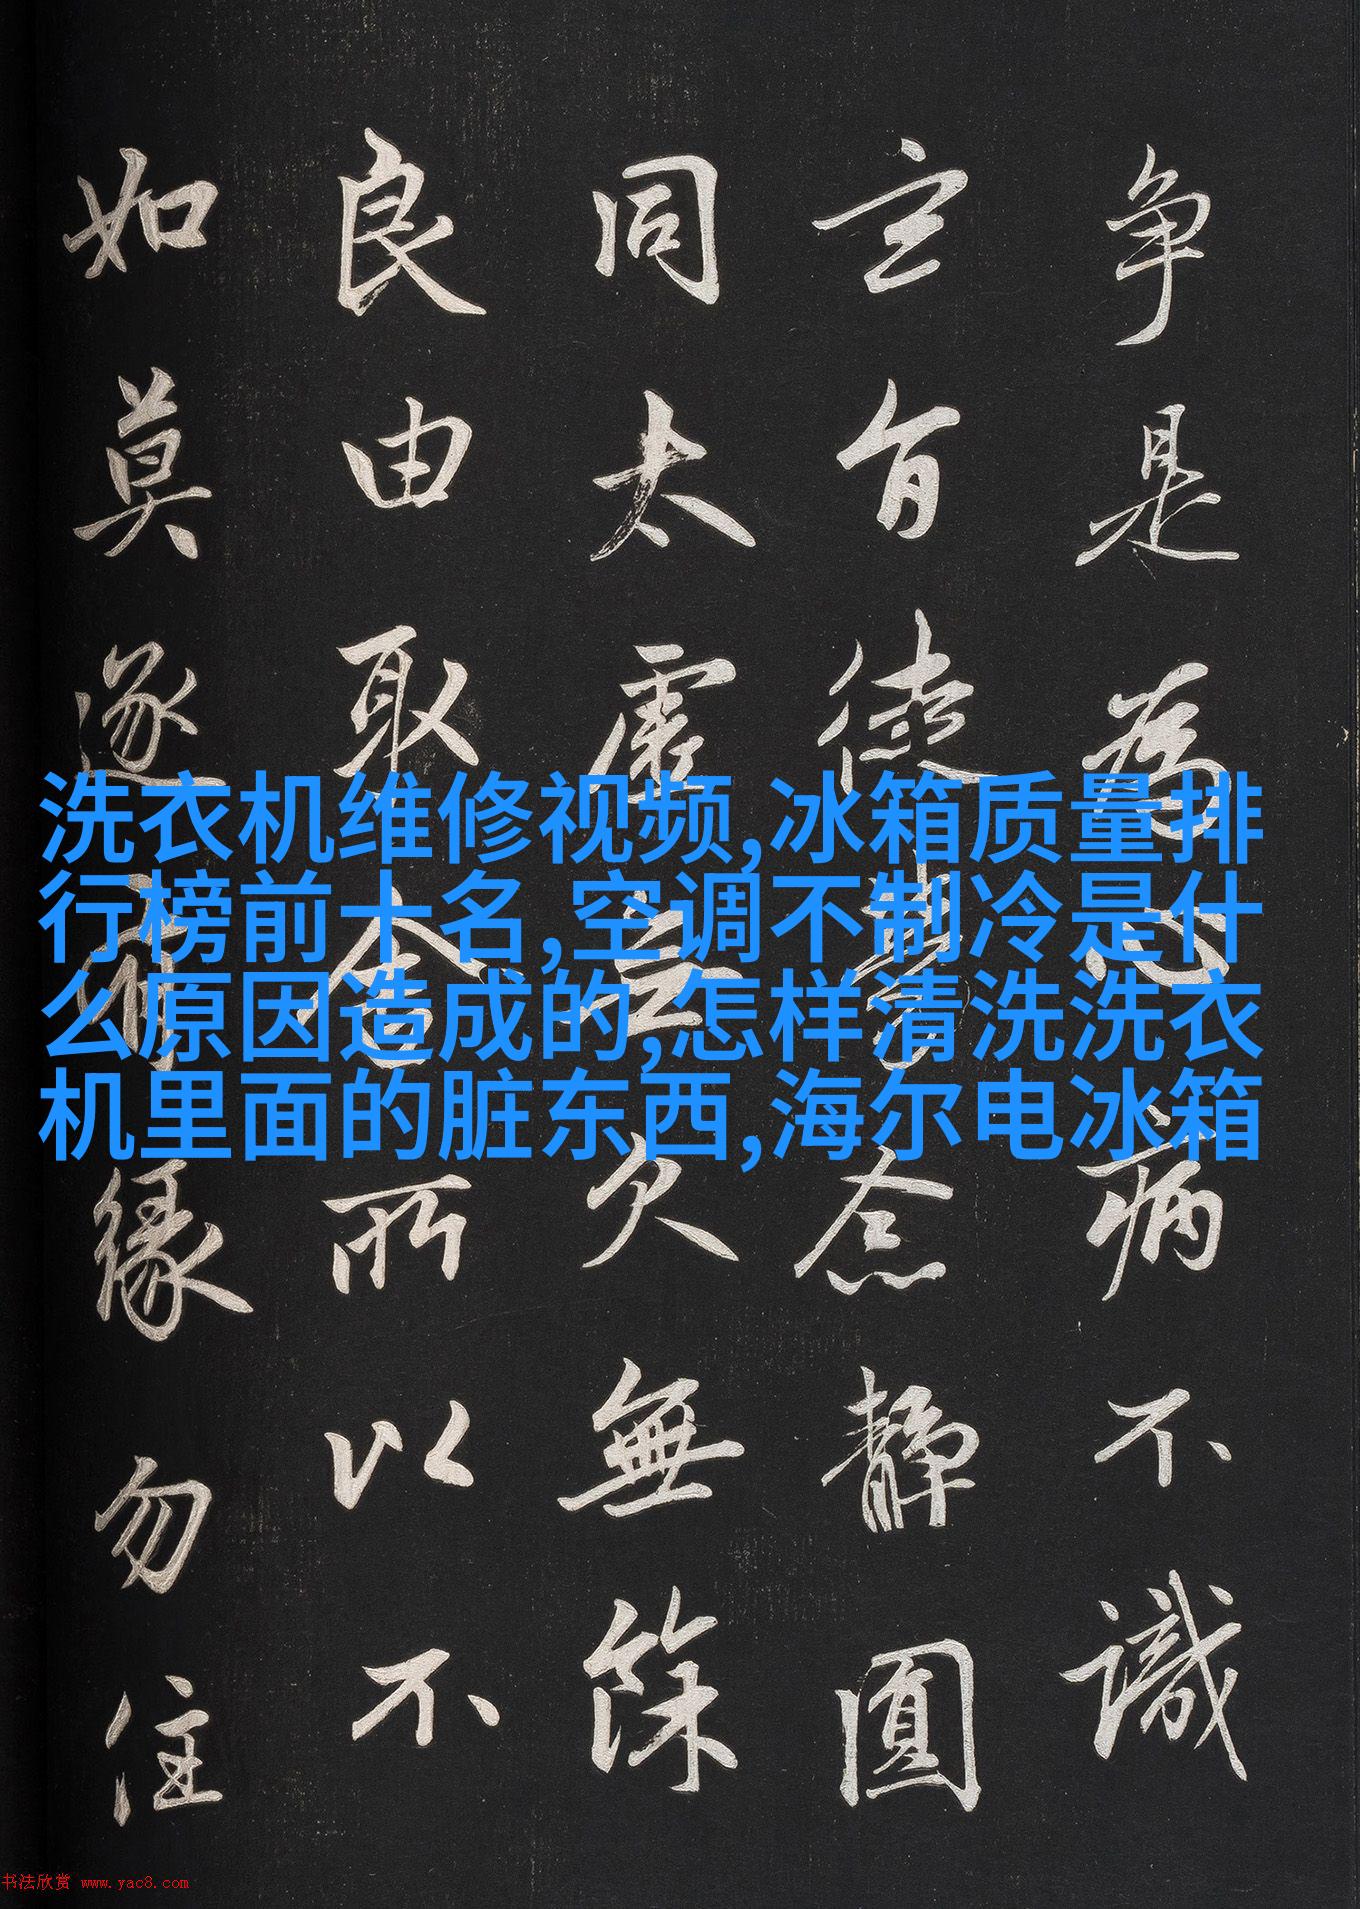 争是為心病不識
玄旨徒勞念静圓
同太虚無欠無餘
良由取舍所以不
如莫逐有緣勿住
洗衣机维修视频,冰箱质量排
行榜前十名,空调不制冷是什
么原因造成的,怎样清洗洗衣
机里面的脏东西,海尔电冰箱
书法欣赏 www.yac8.com